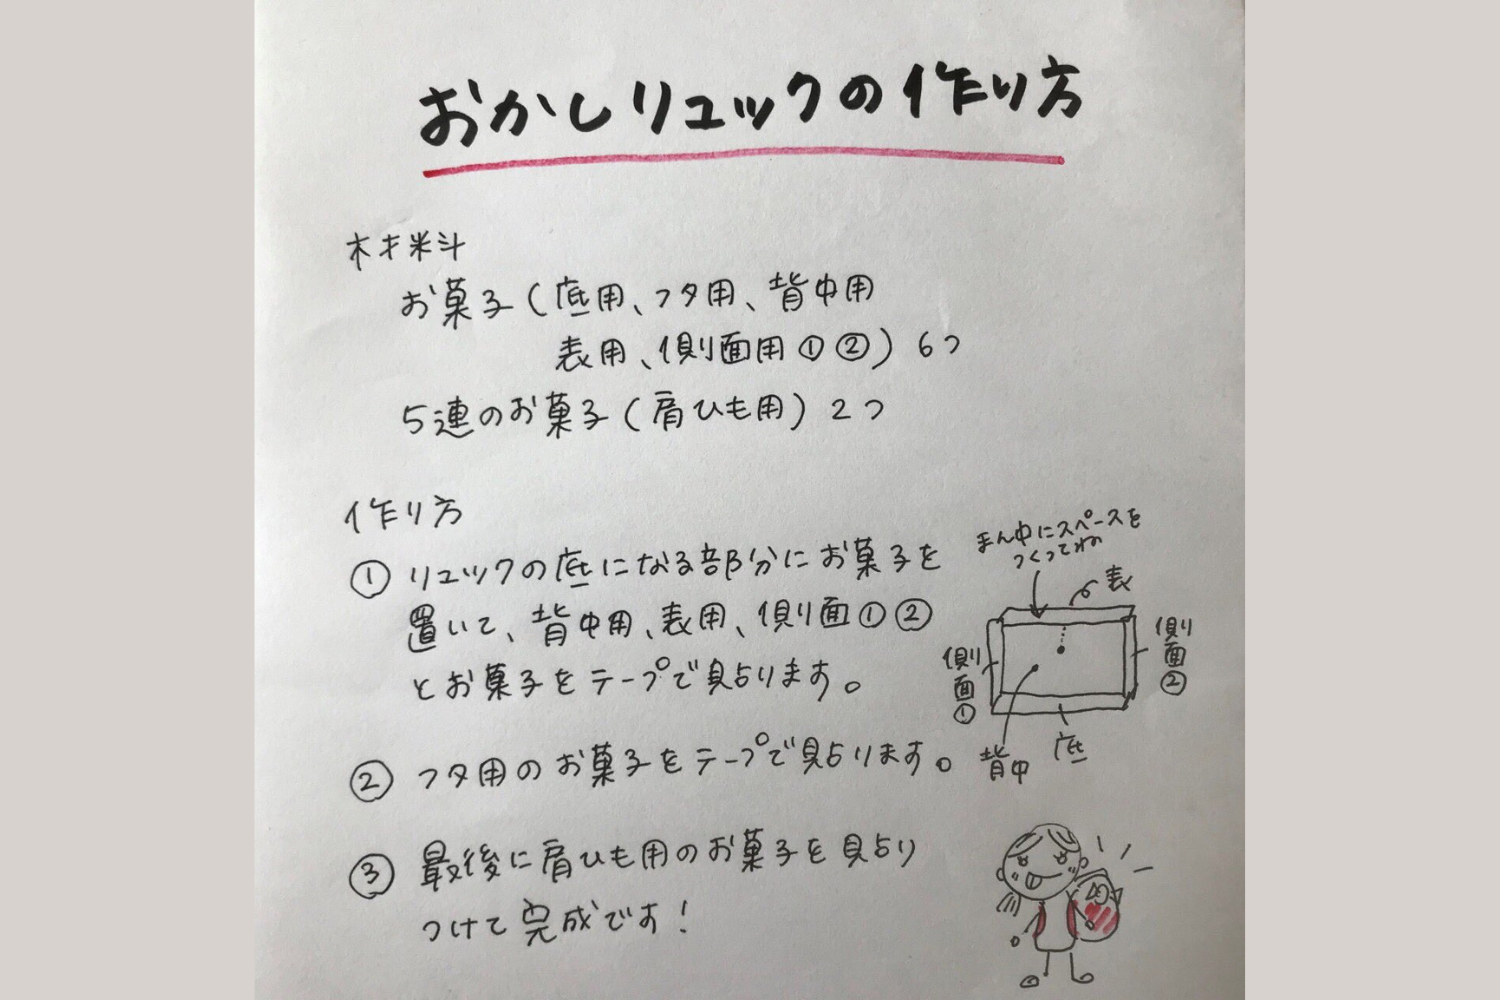 おかしリュックの作り方
材料
お菓子(底用、フタ用、背中用
表用、側面用①②) 6つ
5連のお菓子(肩ひも用) 2つ
作り方
① リュックの底になる部分にお菓子を
置いて、背中用、表用、側面①②
とお菓子をテープで貼ります。
まん中にスペースを
つくってね
表
側面①
側面②
背中
底
② フタ用のお菓子をテープで貼ります。
③ 最後に肩ひも用のお菓子を貼り
つけて完成です!